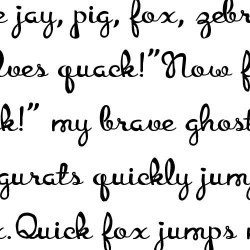 e jay, pig, fox, zebr
lves quack!"Now f
k!" my brave ghost
gurats quickly jum
x.Quick fox jumps